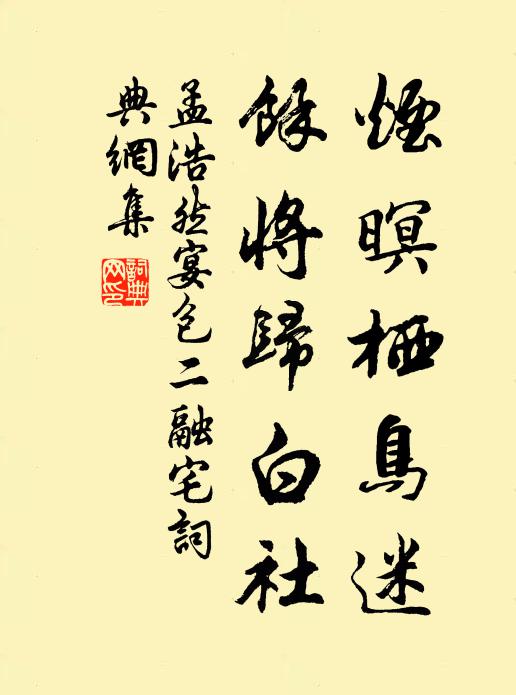 煙暝栖鳥迷
餘將歸白社
孟浩然宴包二融宅詞
典網集
詞典
网印